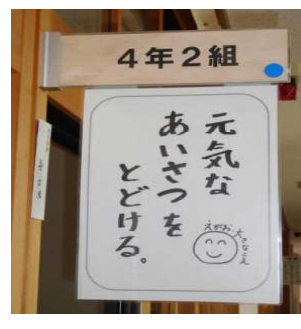 4年2組
元気な
あいさつを
とどける。
えがお・大きなこえ